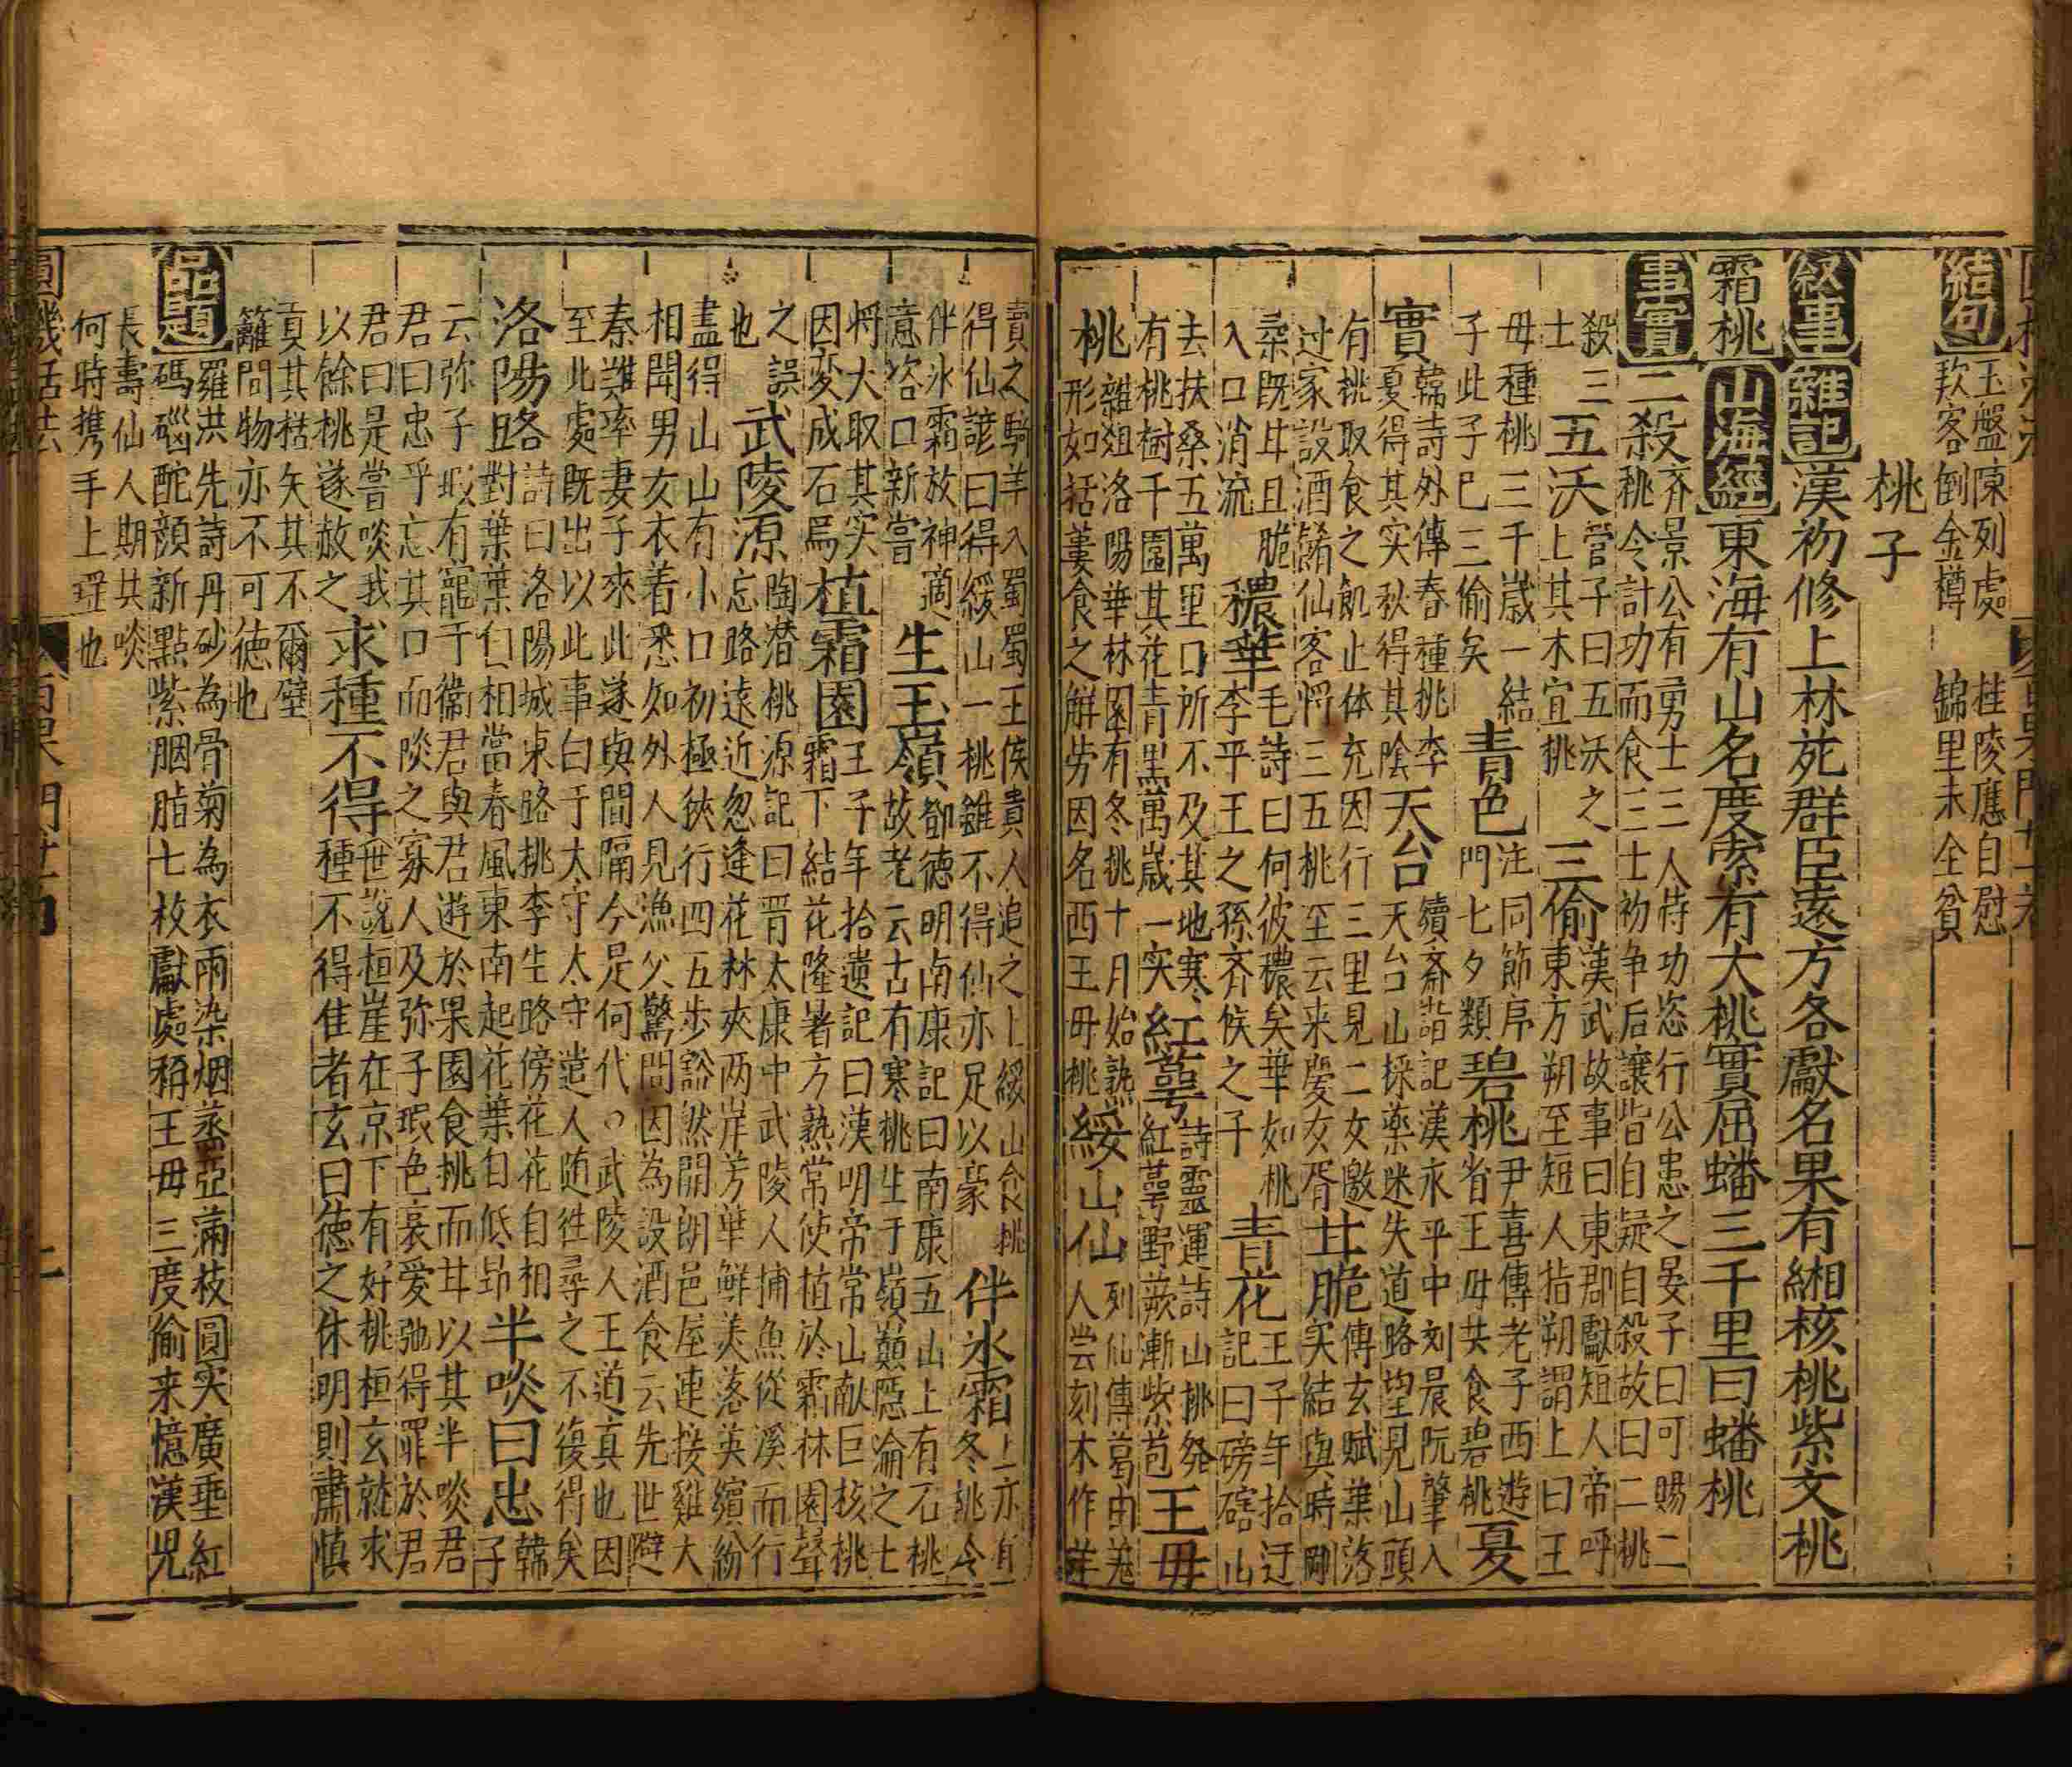 結句
玉盤陳列處　桂陵應自慰
欵客倒金樽　錦里未全貧
桃子
叙事　雜記　漢初修上林苑群臣遠方各獻名果有緗核桃紫文桃
霜桃　山海經　東海有山名度索有大桃實屈蟠三千里曰蟠桃
事實　二殺　齊景公有勇士三人恃功恣行公患之晏子曰可賜二
桃令計功而食三士初争后讓皆自疑自殺故曰二桃
殺三
士
五沃　管子曰五沃之
上其木宜桃
三偷　漢武故事曰東郡獻短人帝呼
東方朔至短人指朔謂上曰王
母種桃三千歲一結
子此子已三偷矣
青色　注同節序
門七夕類
碧桃　尹喜傳老子西遊
省王母共食碧桃
夏
實　韓詩外傳春種桃李
夏得其实秋得其陰
天台　續齊諧記漢永平中刘晨阮肇入
天台山採藥迷失道路望見山頭
有桃取食之飢止体充因行三里見二女邀
过家設酒餚仙客将三五桃至云来慶女胥
甘脆　傳玄賦葉落
实結與時剛
柔既甘且脆
入口消流
穠華　毛詩曰何彼穠矣華如桃
李平王之孫齊侯之子
青花　王子年拾迂
記曰磅磄山
去扶桑五萬里口所不及其地寒
有桃樹千園其花青黑萬歲一实
紅萼　詩靈運詩山桃発
紅萼野蕨漸紫苞
王母
桃　雜俎洛陽華林園有冬桃十月始熟
形如括蔞食之解劳因名西王母桃
綏山仙　列仙傳葛由羗
人尝刻木作羊
賣之騎羊入蜀蜀王侯貴人追之上綏山食桃
得仙諺曰得綏山一桃雖不得仙亦足以豪
伴氷霜　上亦有
冬桃令
伴氷霜放神適
意恣口新嘗
生玉嶺　鄧德明南康記曰南康五山上有石桃
故老云古有寒桃生于嶺巔隱淪之士
将大取其实
因変成石焉
植霜園　王子年拾遺記曰漢明帝常山献巨核桃
霜下結花隆暑方熟常使植於霜林園聲
之誤
也
武陵源　陶潜桃源記曰晋太康中武陵人捕魚從溪而行
忘路遠近忽逢花林夾两岸芳華鮮美落英繽紛
盡得山山有小口初極狹行四五步豁然開朗邑屋連接雞犬
相聞男女衣着悉如外人見漁父驚問因為設酒食云先世避
秦難率妻子來此遂與間隔今是何代武陵人王道真也因
至此處既出以此事白于太守太守遣人随徃尋之不復得矣
洛陽路　詩曰洛陽城東路桃李生路傍花花自相
對葉葉自相當春風東南起花葉自低昂
半啖曰忠　韓
子
云弥子瑕有寵于衛君與君遊於果園食桃而甘以其半啖君
君曰忠乎忘其口而啖之寡人及弥子瑕色衰爱弛得罪於君
君曰是嘗啖我
以餘桃遂赦之
求種不得　世説桓崖在京下有好桃桓玄就求
種不得隹者玄曰德之休明則肅慎
貢其楛矢其不爾壁
籬間物亦不可徳也
品題　羅洪先詩丹砂為骨菊為衣雨染烟蒸亞滿枝圓实廣垂紅
碼碯酡顔新點紫胭脂七枚獻處稱王毋三度偷来憶漢児
長壽仙人期共啖
何時携手上瑶也